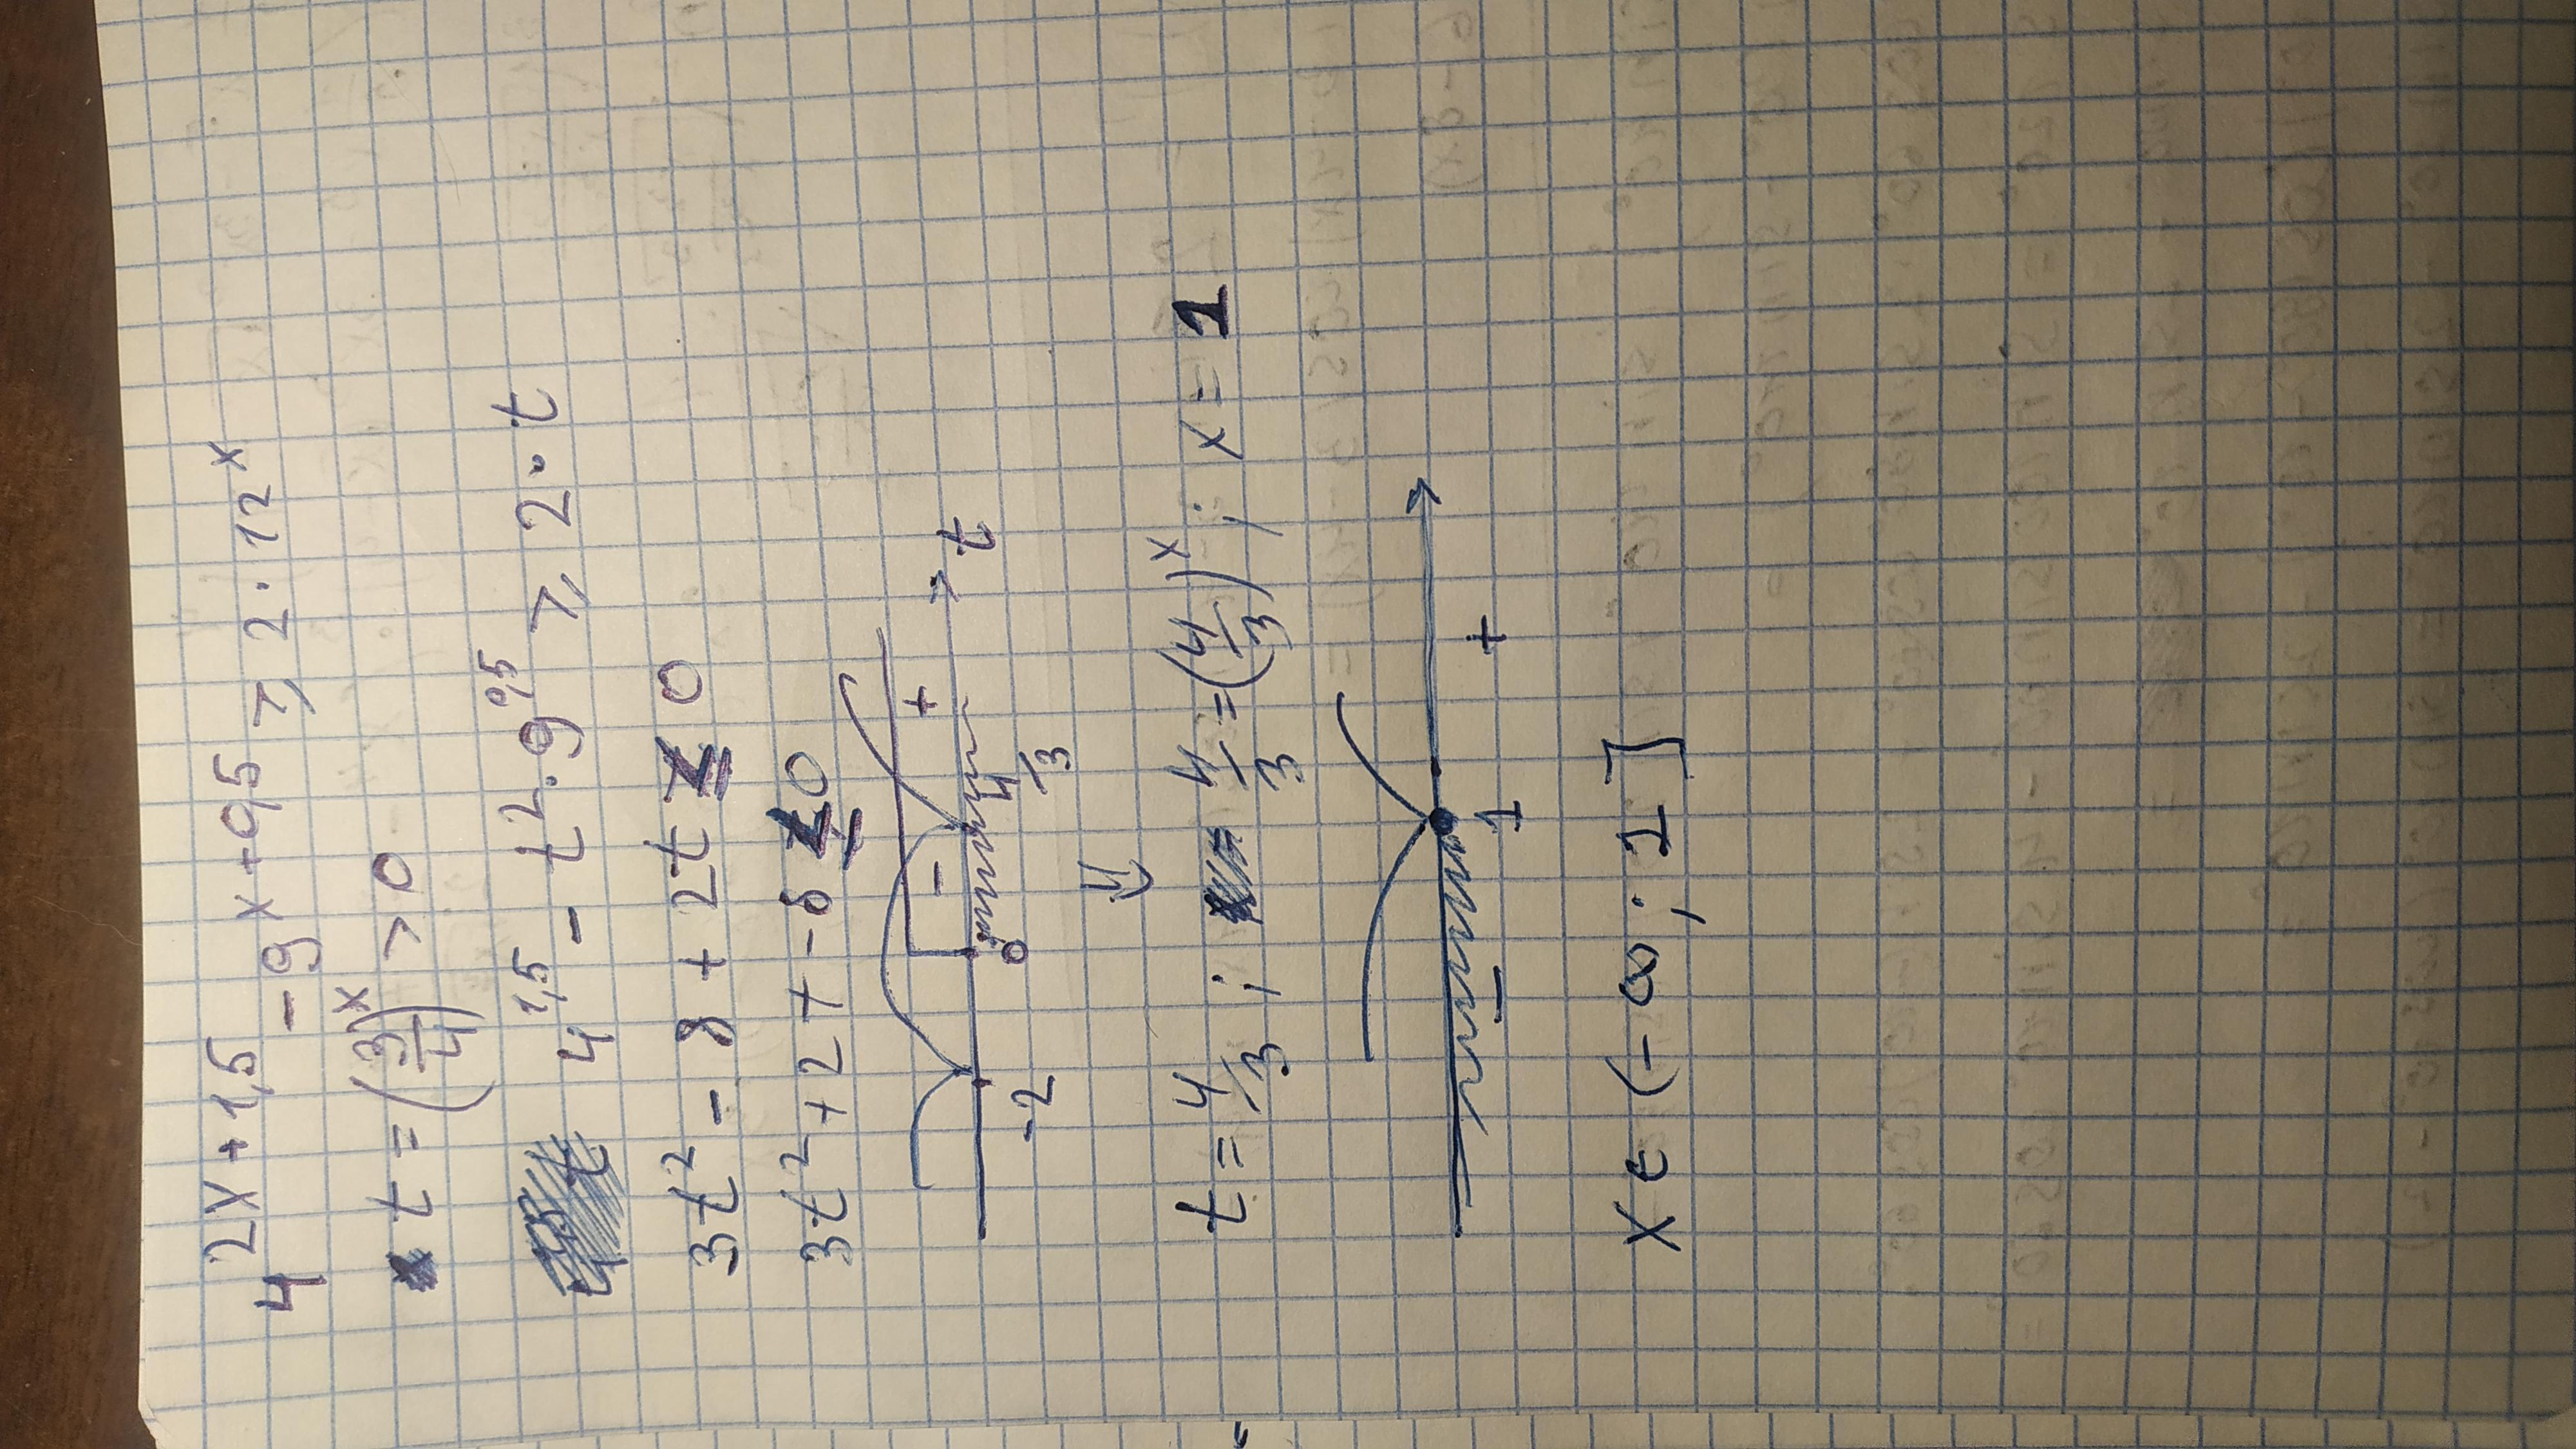 4^{2x+1,5} - 9^{x+0,5} ⩾ 2 · 12^x
t = (3/4)^x > 0
4^{1,5} - t^2 · 9^{0,5} ⩾ 2 · t
3t^2 - 8 + 2t ≤ 0
3t^2 + 2t - 8 ≤ 0
- +
-2 0 4/3 t
⇓
t = 4/3 ; 4/3 = (4/3)^x ; x = 1
- 1 +
x ∈ (-∞; 1]